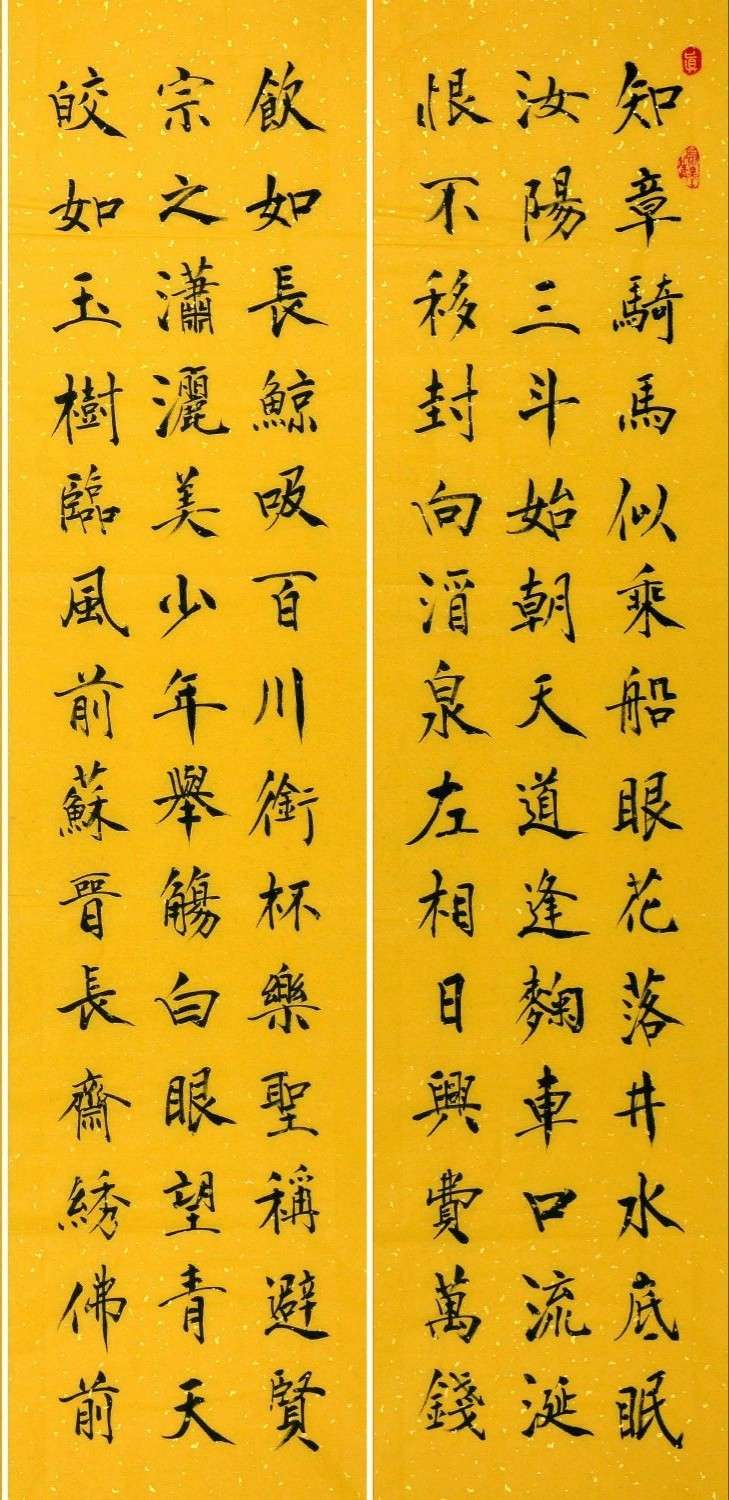 知章騎馬似乘船眼花落井水底眠
汝陽三斗始朝天道逢麴車口流涎
恨不移封向酒泉左相日興費萬錢
飲如長鯨吸百川銜杯樂聖稱避賢
宗之瀟灑美少年舉觴白眼望青天
皎如玉樹臨風前蘇晉長齋綉佛前